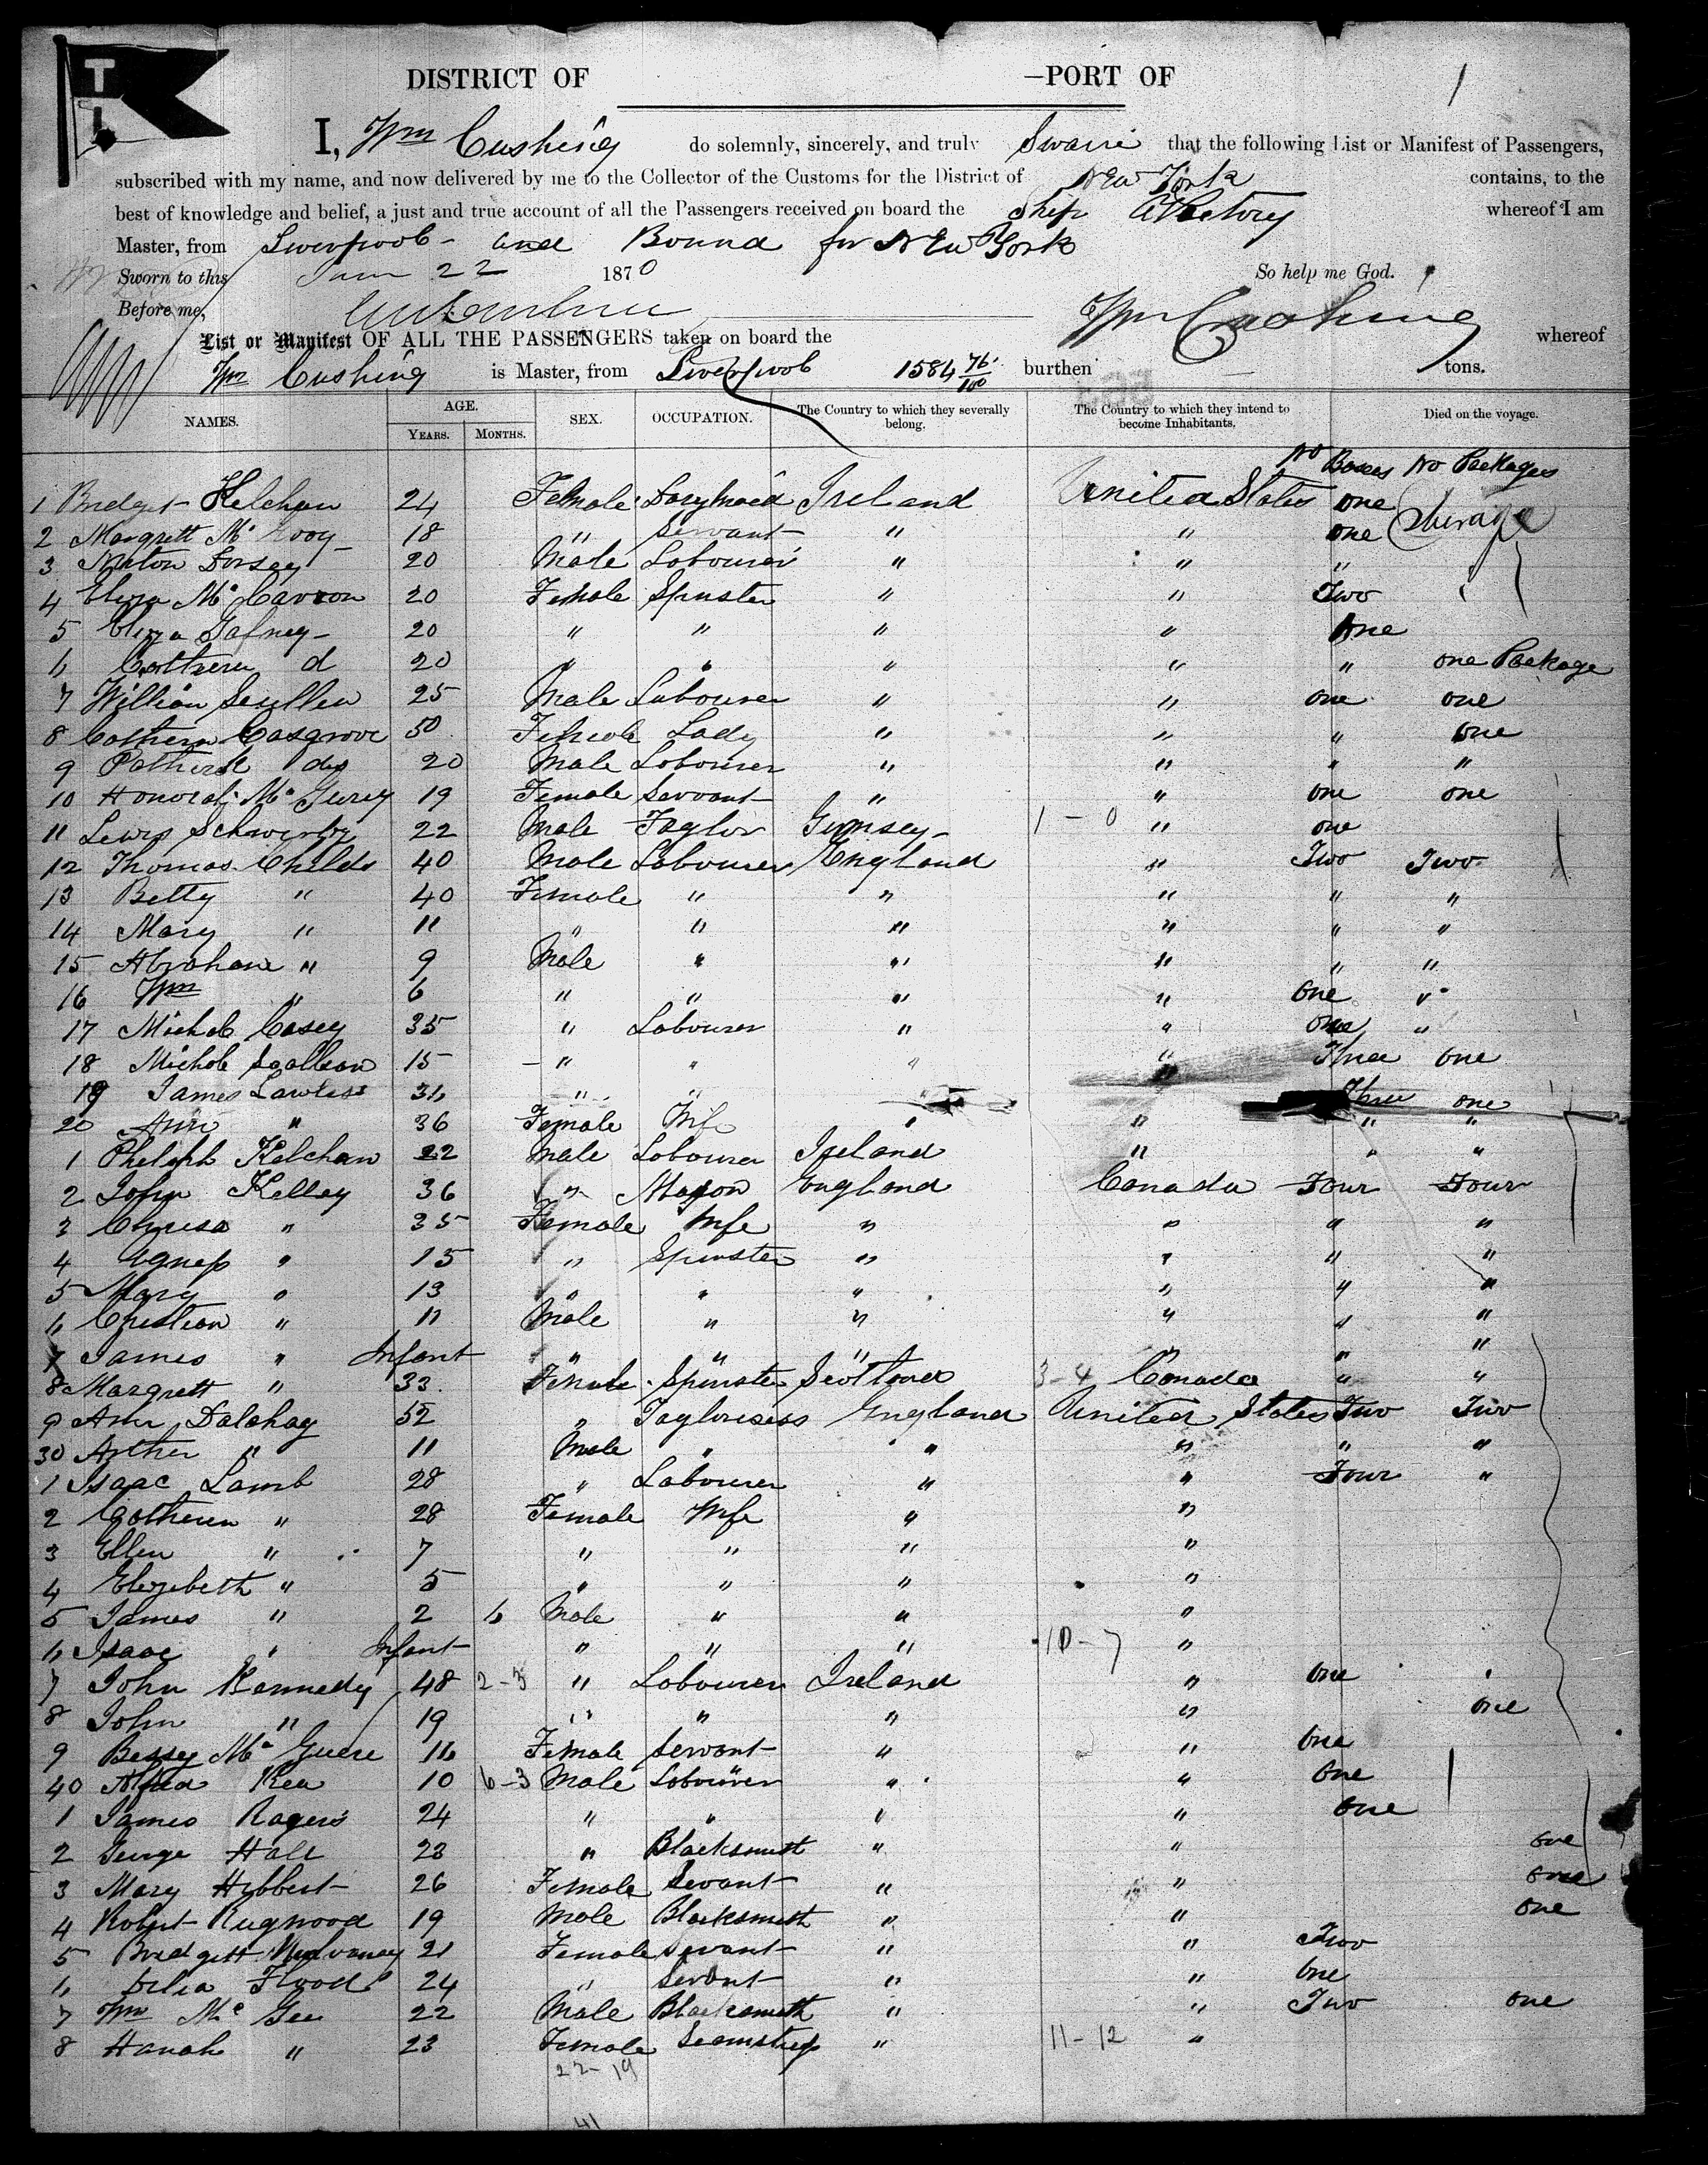 T
I
DISTRICT OF —PORT OF
1
I, Wm Cushing do solemnly, sincerely, and truly Swair that the following List or Manifest of Passengers,
subscribed with my name, and now delivered by me to the Collector of the Customs for the District of New York contains, to the
best of knowledge and belief, a just and true account of all the Passengers received on board the Ship whereof I am
Master, from Liverpool - and Bound for New York
Sworn to this 22 1870 So help me God.
Before me, Wm Cushing
List or Manifest OF ALL THE PASSENGERS taken on board the whereof
Wm Cushing is Master, from Liverpool 1584 76/100 burthen tons.
NAMES. AGE. YEARS. MONTHS. SEX. OCCUPATION. The Country to which they severally belong. The Country to which they intend to become Inhabitants. Died on the voyage.
No Boxes No Packages
1 Bridget Kelchan 24 Female Ireland United States one
2 Margrett Mc 18 " Servant " " one
3 20 Male Labourer " " "
4 Eliza Mc Carron 20 Female Spinster " " Two
5 Eliza Gafney 20 " " " " one
6 Cathren d 20 " " " " " one Package
7 William Scullen 25 Male Labourer " " one one
8 Cathern Casgrove 50 Female Lady " " " one
9 do 20 Male Labourer " " " "
10 Honorah Mc Gurey 19 Female Servant " " one one
11 Lewis 22 Male Taylor 1 - 0 " one
12 Thomas Childs 40 Male Labourer England " Two Two
13 Betty " 40 Female " " " " "
14 Mary " 11 " " " " " "
15 Abraham " 9 Male " " " " "
16 Wm " 6 " " " " one "
17 Michal Casey 35 " Labourer " " one "
18 Michale 15 " " " " Three one
19 James Lawless 36 " " " Three one
20 Ann " 36 Female Wife " " " "
1 Kelchan 22 Male Labourer Ireland " " "
2 John Kelley 36 " Mason England Canada Four Four
3 " 35 Female Wife " " " "
4 Agness " 15 " Spinster " " " "
5 Mary " 13 " " " " " "
6 Cristian " 11 Male " " " " "
7 James " Infant " " " " " "
8 Margrett " 33 Female Spinster Scotland 3-4 Canada " "
9 Ann Dalahay 52 " England United States Two Two
30 Arther " 11 Male " " " " "
1 Isaac Lamb 28 " Labourer " " Four "
2 Catheren " 28 Female Wife " "
3 Ellen " 7 " " " "
4 Elezebeth " 5 " " " "
5 James " 2 6 Male " " "
6 Isaac " Infant " " " 10-7 "
7 John Kennedy 48 2-3 " Labourer Ireland " one
8 John " 19 " " " " one
9 Bessey Mc Guere 16 Female Servant " " one
40 Alfred Rea 10 6-3 Male Labourer " " one
1 James Rogers 24 " " " " one
2 George Hall 23 " Blacksmith " " one
3 Mary Hibbert 26 Female Servant " " one
4 Robert Rugwood 19 Male Blacksmith " " one
5 Bridgett Mulvaney 21 Female Servant " " Two
6 Delia Flood 24 " Servant " " one
7 Wm Mc Gee 22 Male Blacksmith " " Two one
8 Hanah " 23 Female Seamstress " 11-12 "
22-19
41